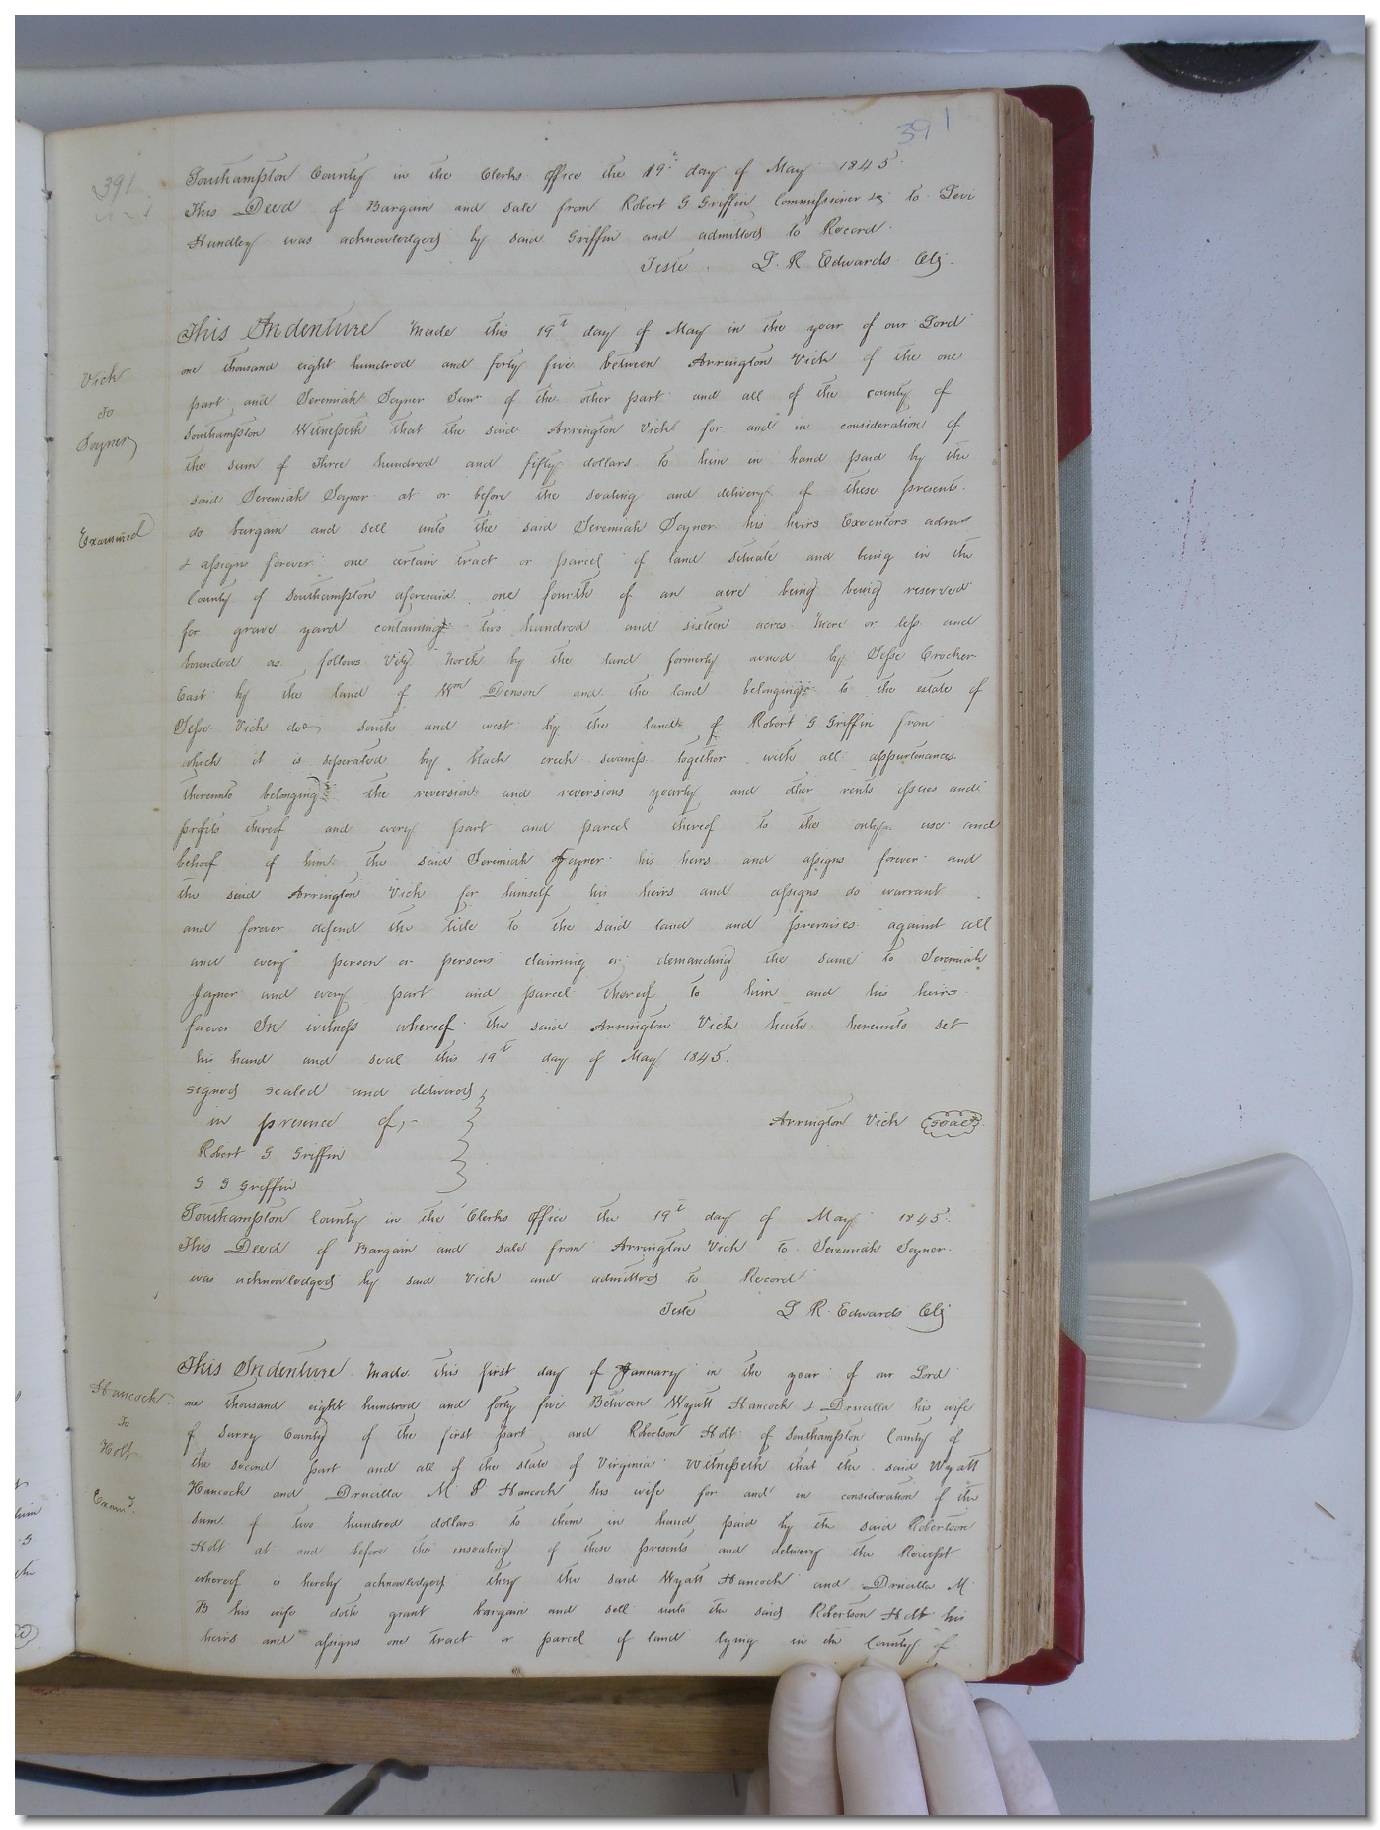 391
391
Southampton County in the Clerks office the 19th day of May 1845
This Deed of Bargain and sale from Robert G Griffin Commissioner &c to Levi
Hundley was acknowledged by said Griffin and admitted to Record
Teste . L. R Edwards Clk.
This Indenture Made this 19th day of May in the year of our Lord
one thousand eight hundred and forty five between Arrington Vick of the one
Vick
to
Joyner
part and Jeremiah Joyner Senr of the other part and all of the county of
Southampton Witnesseth that the said Arrington Vick for and in consideration of
the sum of Three hundred and fifty dollars to him in hand paid by the
said Jeremiah Joyner at or before the sealing and delivery of these presents
Examined
do bargain and sell unto the said Jeremiah Joyner his heirs Executors admr
& assigns forever one certain tract or parcel of land situate and being in the
County of Southampton aforesaid one fourth of an acre being being reserved
for grave yard containing two hundred and sixteen acres more or less and
bounded as follows Viz North by the land formerly owned by Jesse Crocker
East by the land of Wm Denson and the land belonging to the estate of
Jesse Vick decd south and west by the lands of Robert G Griffin from
which it is seperated by black creek swamp together with all appurtenances
thereunto belonging the reversions and reversions yearly and other rents issues and
profits thereof and every part and parcel thereof to the only use and
behoof of him the said Jeremiah Joyner his heirs and assigns forever and
the said Arrington Vick for himself his heirs and assigns do warrant
and forever defend the title to the said land and premises against all
and every person or persons claiming or demanding the same to Jeremiah
Joyner and every part and parcel thereof to him and his heirs
forever In witness whereof the said Arrington Vick hath hereunto set
his hand and seal this 19th day of May 1845.
signed sealed and delivered
in presence of,-
Arrington Vick seal
Robert G Griffin
G G Griffin
Southampton County in the Clerks Office the 19th day of May 1845.
This Deed of Bargain and sale from Arrington Vick to Jeremiah Joyner
was acknowledged by said Vick and admitted to Record
Teste L R. Edwards Clk
This Indenture Made this first day of January in the year of our Lord
Hancock
To
Holt
Examd.
one thousand eight hundred and forty five Between Wyatt Hancock & Drucilla his wife
of Surry County of the first part and Robertson Holt of Southampton County of
the second part and all of the state of Virginia Witnesseth that the said Wyatt
Hancock and Drucilla M P Hancock his wife for and in consideration of the
sum of two hundred dollars to them in hand paid by the said Robertson
Holt at and before the insealing of these presents and delivery the Receipt
whereof is hereby acknowledged they the said Wyatt Hancock and Drucilla M
B his wife doth grant bargain and sell unto the said Robertson Holt his
heirs and assigns one tract or parcel of land lying in the County of